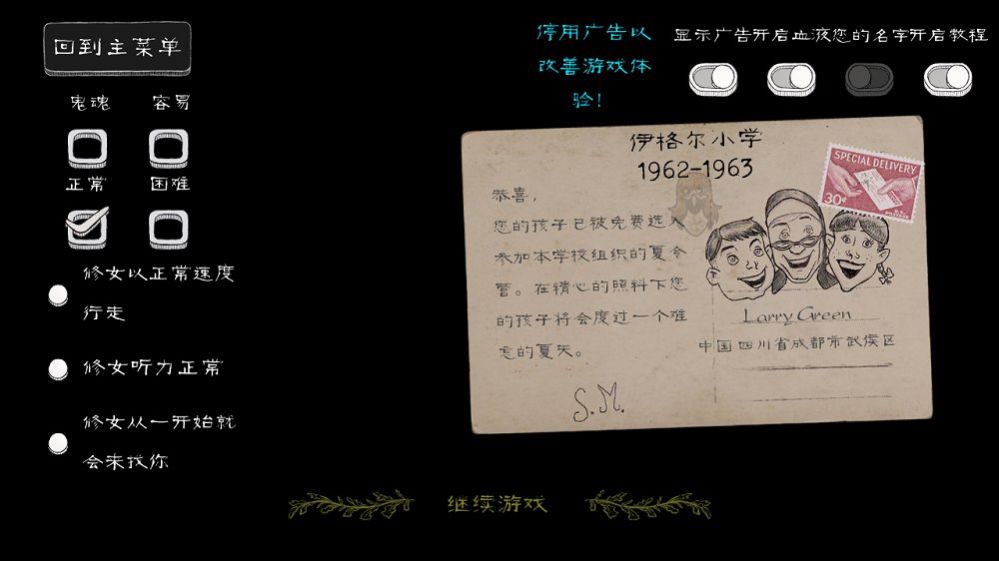 回到主菜单
停用广告以
改善游戏体
验!
显示广告开启血液您的名字开启教程
鬼魂 容易
正常 困难
修女以正常速度
行走
修女听力正常
修女从一开始就
会来找你
伊格尔小学
1962-1963
恭喜,
您的孩子已被免费选入
参加本学校组织的夏令
营。在精心的照料下您
的孩子将会度过一个难
忘的夏天。
S.M.
SPECIAL DELIVERY
30¢
Larry Green
中国四川省成都市武侯区
继续游戏